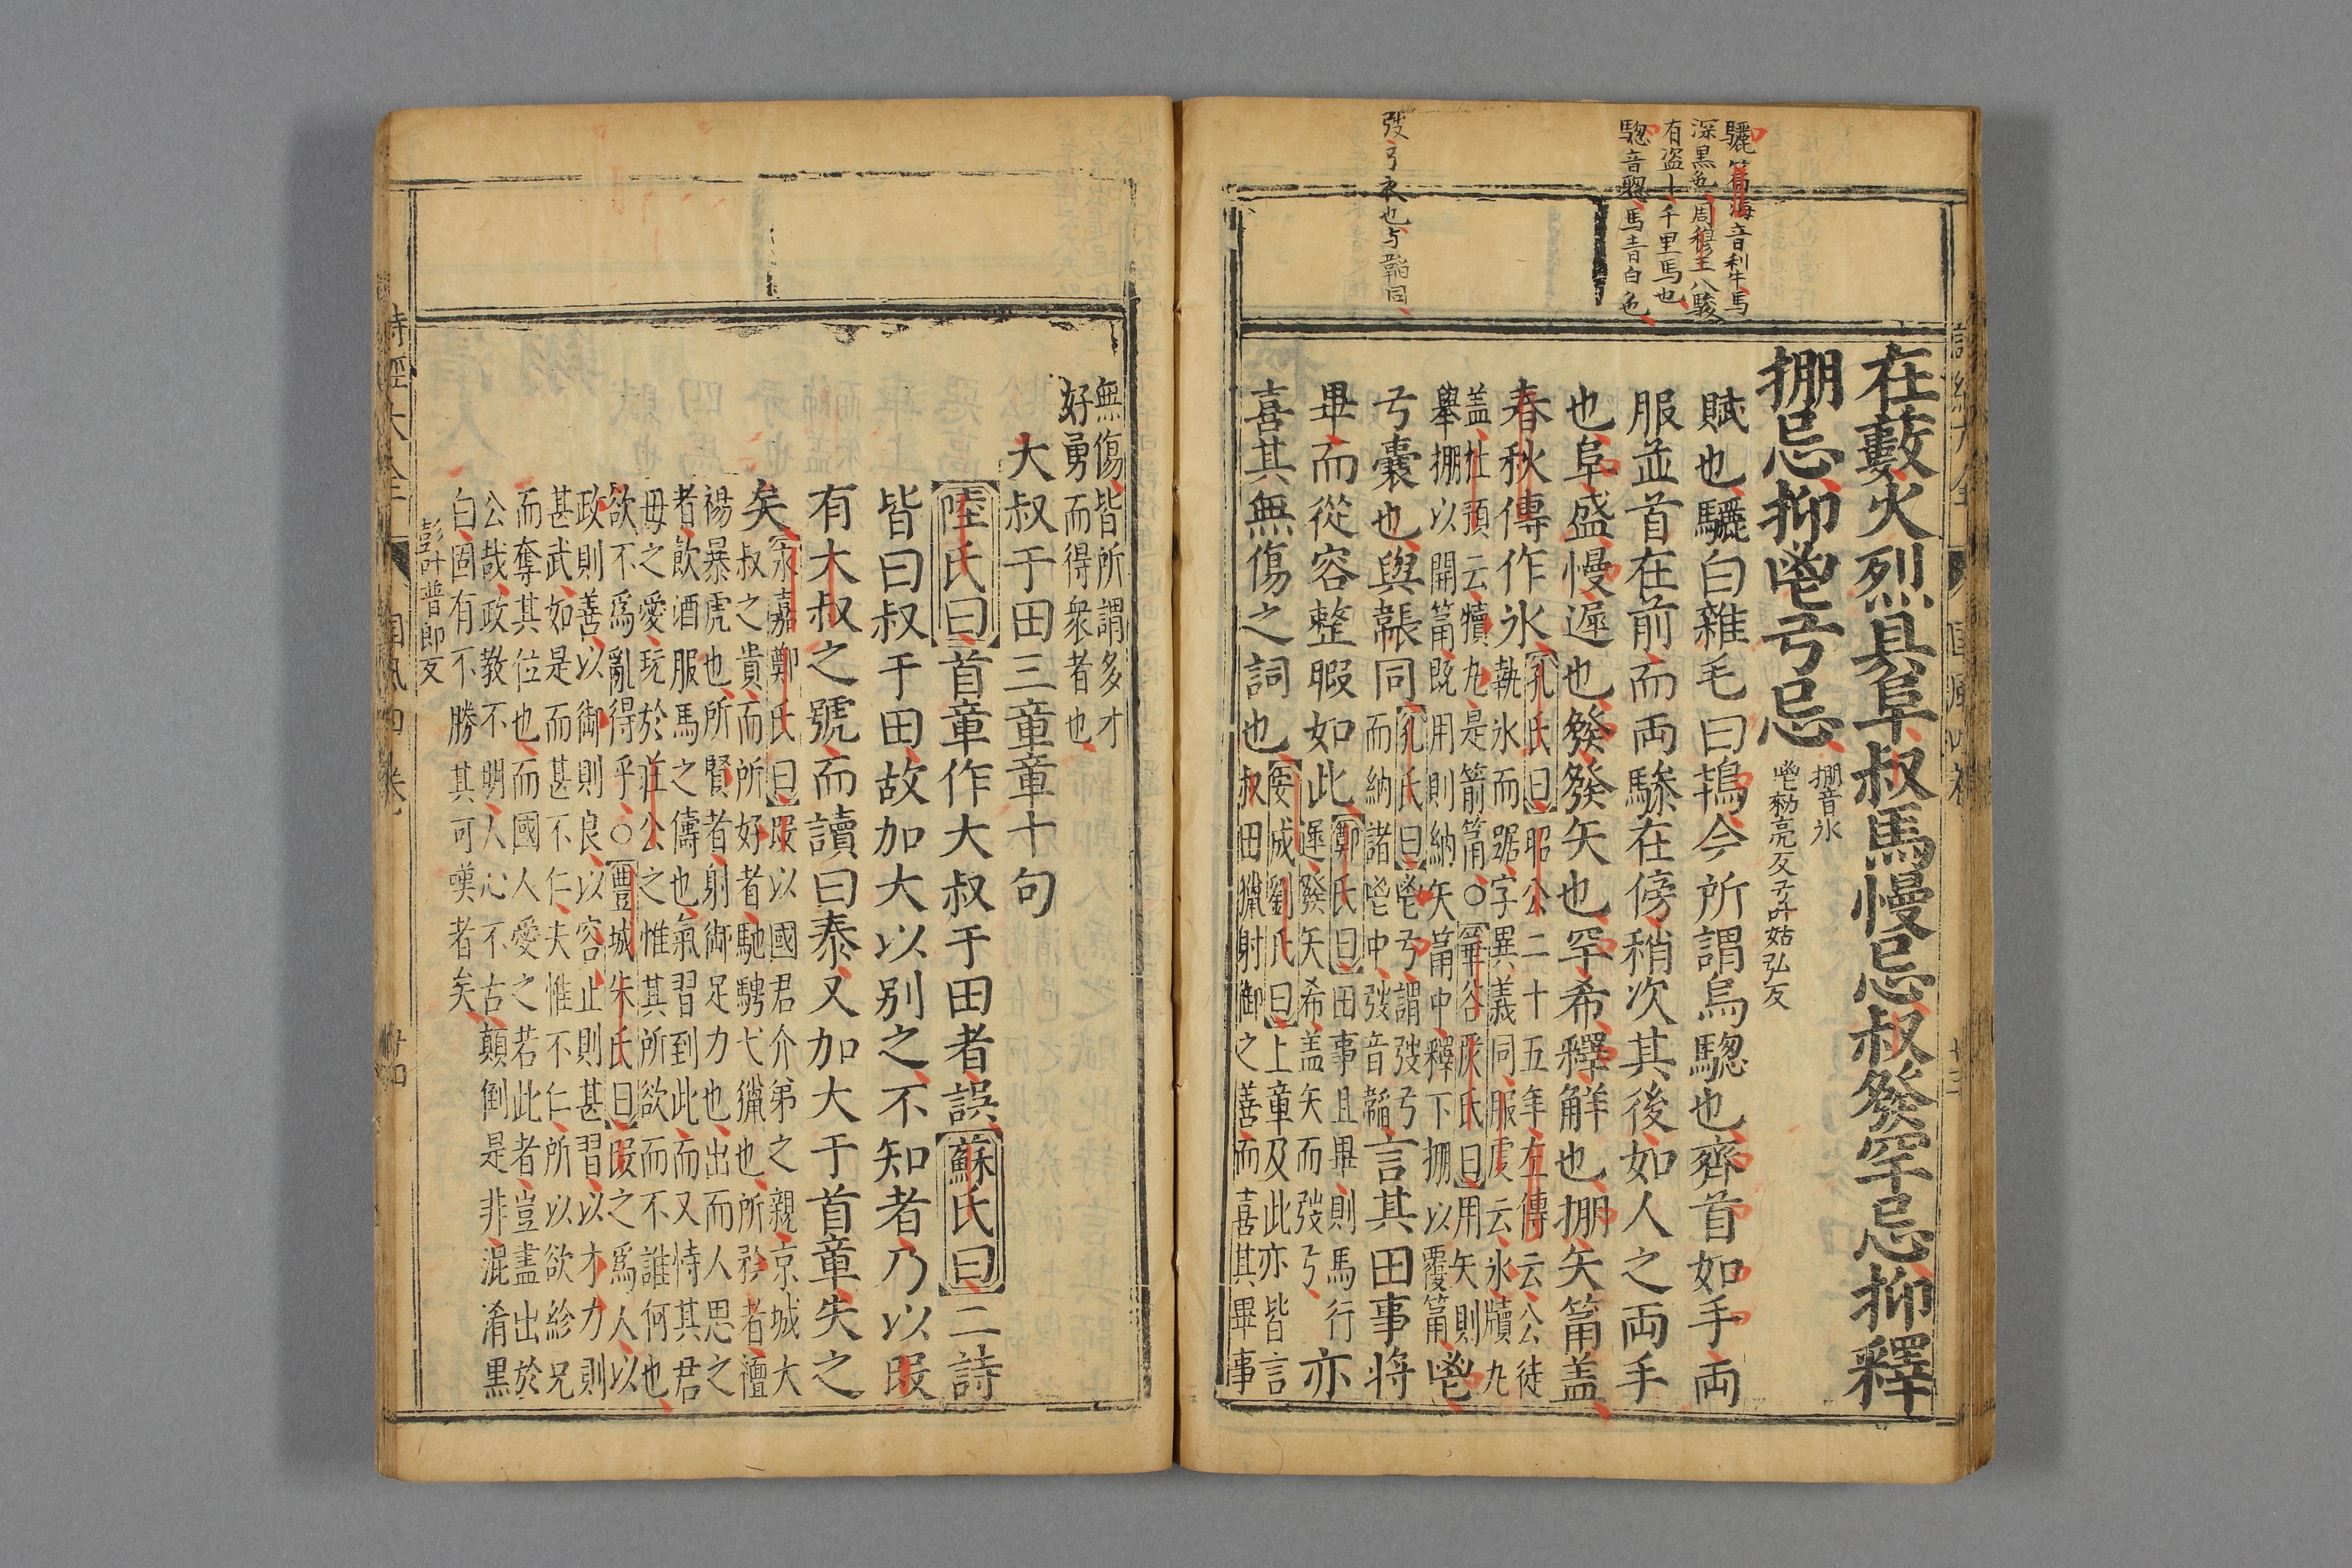 驪篇海音利牛馬
深黑色周穆王八駿
有盗十千里馬也
騘音騘馬青白色
弢弓衣也与韜同
在藪火烈具阜叔馬慢忌叔發罕忌抑釋
掤忌抑鬯弓忌
掤音氷
鬯勑亮反弓叶姑弘反
賦也驪白雜毛曰鴇今所謂烏騘也齊首如手两
服並首在前而两驂在傍稍次其後如人之两手
也阜盛慢遲也發發矢也罕希釋解也掤矢筩盖
春秋傳作氷
孔氏曰昭公二十五年左傳云公徒
執氷而踞字異義同服虔云氷犢丸
盖杜預云犢丸是箭筩○華谷嚴氏曰用矢則
舉掤以開筩既用則納矢筩中釋下掤以覆筩
鬯
弓囊也與韔同
孔氏曰鬯弓謂弢弓
而納諸鬯中弢音韜
言其田事將
畢而從容整暇如此
鄭氏曰田事且畢則馬行
遲發矢希盖矢而弢弓
亦
喜其無傷之詞也
安成劉氏曰上章及此亦皆言
叔田獵射御之善而喜其畢事
無傷皆所謂多才
好勇而得衆者也
大叔于田三章章十句
陸氏曰首章作大叔于田者誤蘇氏曰二詩
皆曰叔于田故加大以别之不知者乃以段
有大叔之號而讀曰泰又加大于首章失之
矣
永嘉鄭氏曰段以國君介弟之親京城大
叔之貴而所好者馳騁弋獵也所矜者襢
裼暴虎也所賢者射御足力也出而人思之
者飲酒服馬之儔也氣習到此而又恃其君
毋之愛玩於莊公之惟其所欲而不誰何也
欲不爲亂得乎○豐城朱氏曰段之爲人以
政則善以御則良以容止則甚習以才力則
甚武如是而甚不仁夫惟不仁所以欲紾兄
而奪其位也而國人愛之若此者豈盡出於
公哉政教不明人心不古顛倒是非混淆黒
白固有不勝其可嘆者矣
彭叶普郎反
詩經大全
國風四卷
卄四